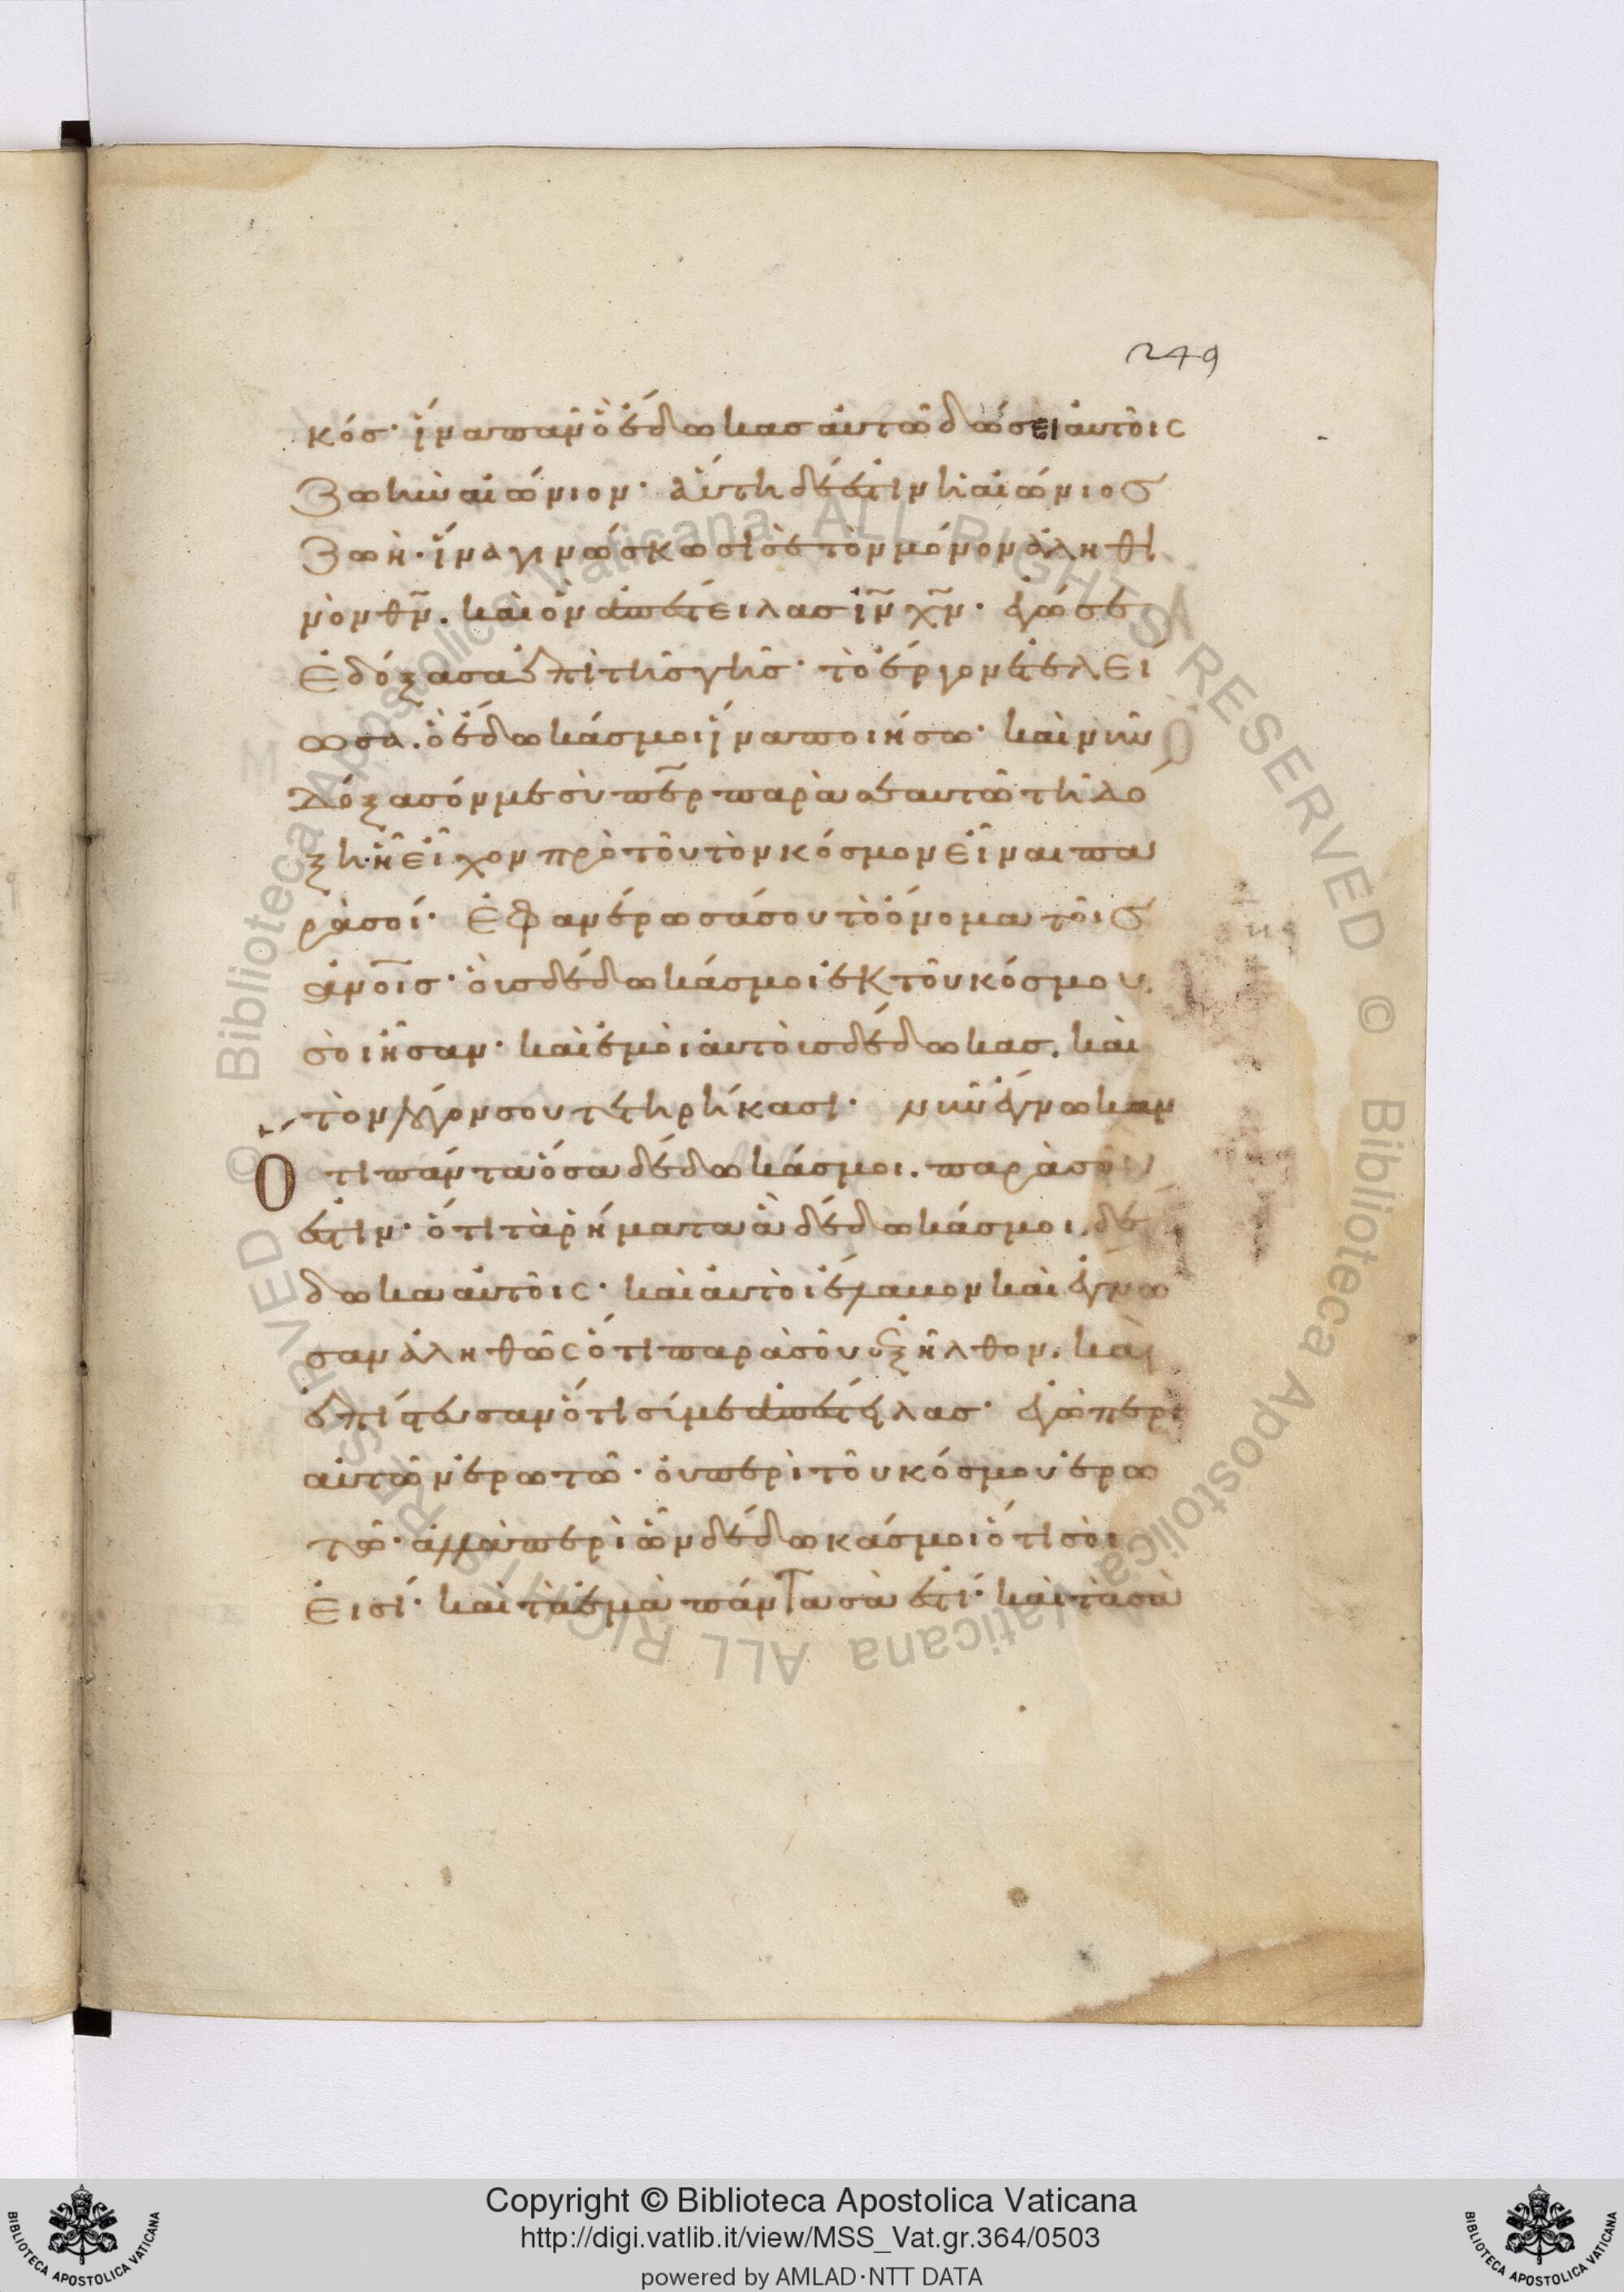 249
κόσ· ἵνα πᾶν ὃ ἔδωκασ αὐτῶ δώσει αὐτοῖς
ζωὴν αἰώνιον· αὕτη δέ ἐστιν ἡ αἰώνιοσ
ζωὴ· ἵνα γινώσκωσί σε τὸν μόνον ἀληθι
νὸν θν̄. καὶ ὃν ἀπέστειλασ ιν̄ χν̄· ἐγώ σε
ἐδόξασα ἐπὶ τῆσ γῆσ· τὸ ἔργον ἐτελεί
ωσα. ὃ ἔδωκάσ μοι ἵνα ποιήσω· καὶ νῦν
δόξασόν με σὺ περ παρὰ σεαυτῶ τῆ δό
ξη· ἧ εἶχον πρὸ τοῦ τὸν κόσμον εἶναι πα
ρὰ σοί· Ἐφανέρωσά σου τὸ ὄνομα τοῖσ
ἀνοῖσ· οἷσ δέδωκάσ μοι ἐκ τοῦ κόσμου.
σοὶ ἦσαν· καὶ ἐμοὶ αὐτοὺσ δέδωκασ. καὶ
τὸν λόγον σου τετηρήκασι· νῦν ἔγνωκαν
Οτι πάντα ὅσα δέδωκάσ μοι. παρὰ σοῦ
ἐστιν· ὅτι τὰ ῥήματα ἃ δέδωκάσ μοι. δέ
δωκα αὐτοῖς· καὶ αὐτοὶ ἔλαβον καὶ ἔγνω
σαν ἀληθῶς ὅτι παρὰ σοῦ ἐξῆλθον. καὶ
ἐπίστευσαν ὅτι σύ με ἀπέστειλασ· ἐγὼ περὶ
αὐτῶν ἐρωτῶ· οὐ περὶ τοῦ κόσμου ἐρω
τῶ· ἀλλὰ περὶ ὧν δέδωκάσ μοι ὅτι σοὶ
εἰσί· καὶ τὰ ἐμὰ πάντα σὰ ἐστί· καὶ τὰ σὰ
Copyright © Biblioteca Apostolica Vaticana
http://digi.vatlib.it/view/MSS_Vat.gr.364/0503
powered by AMLAD·NTT DATA
BIBLIOTECA APOSTOLICA VATICANA
BIBLIOTECA APOSTOLICA VATICANA
© Biblioteca Apostolica Vaticana ALL RIGHTS RESERVED
© Biblioteca Apostolica Vaticana ALL RIGHTS RESERVED